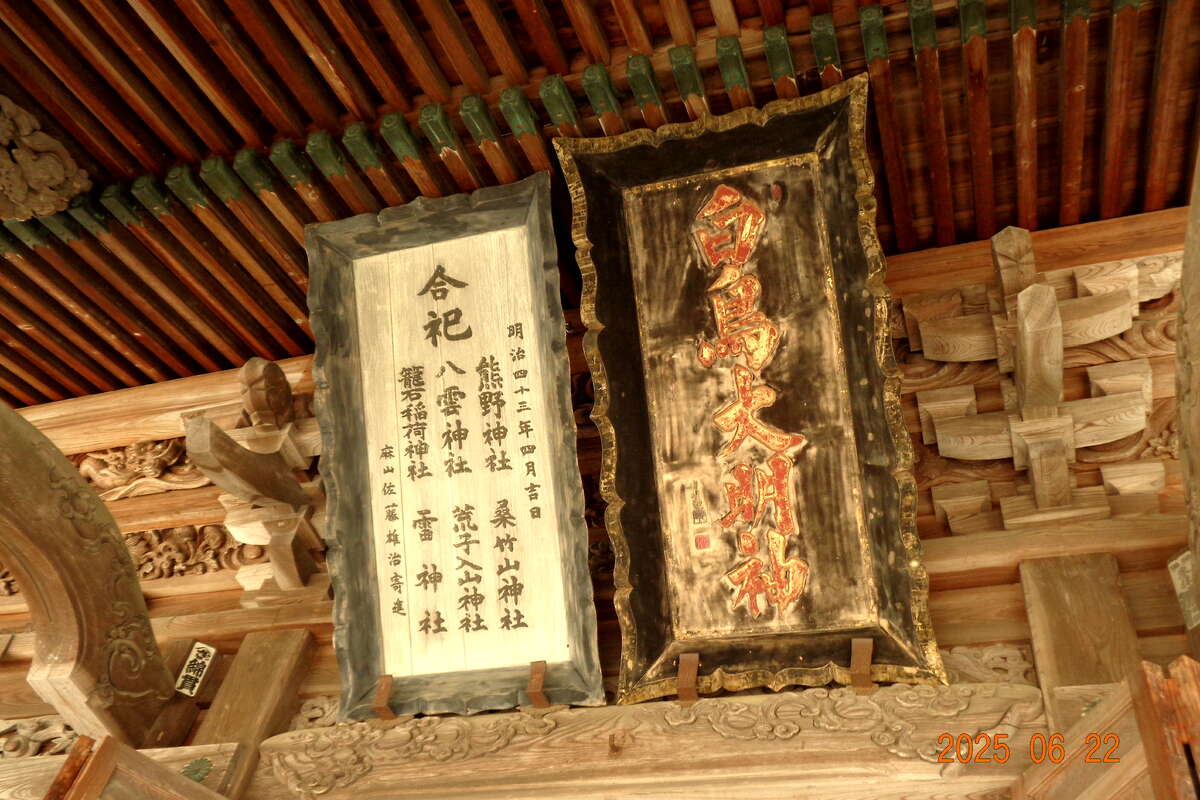 白鳥大明神
明治四十三年四月吉日
合祀
熊野神社
桑竹山神社
八雲神社
荒子入山神社
籠石稲荷神社
雷神社
麻山佐藤雄治寄進
綿貫
2025 06 22